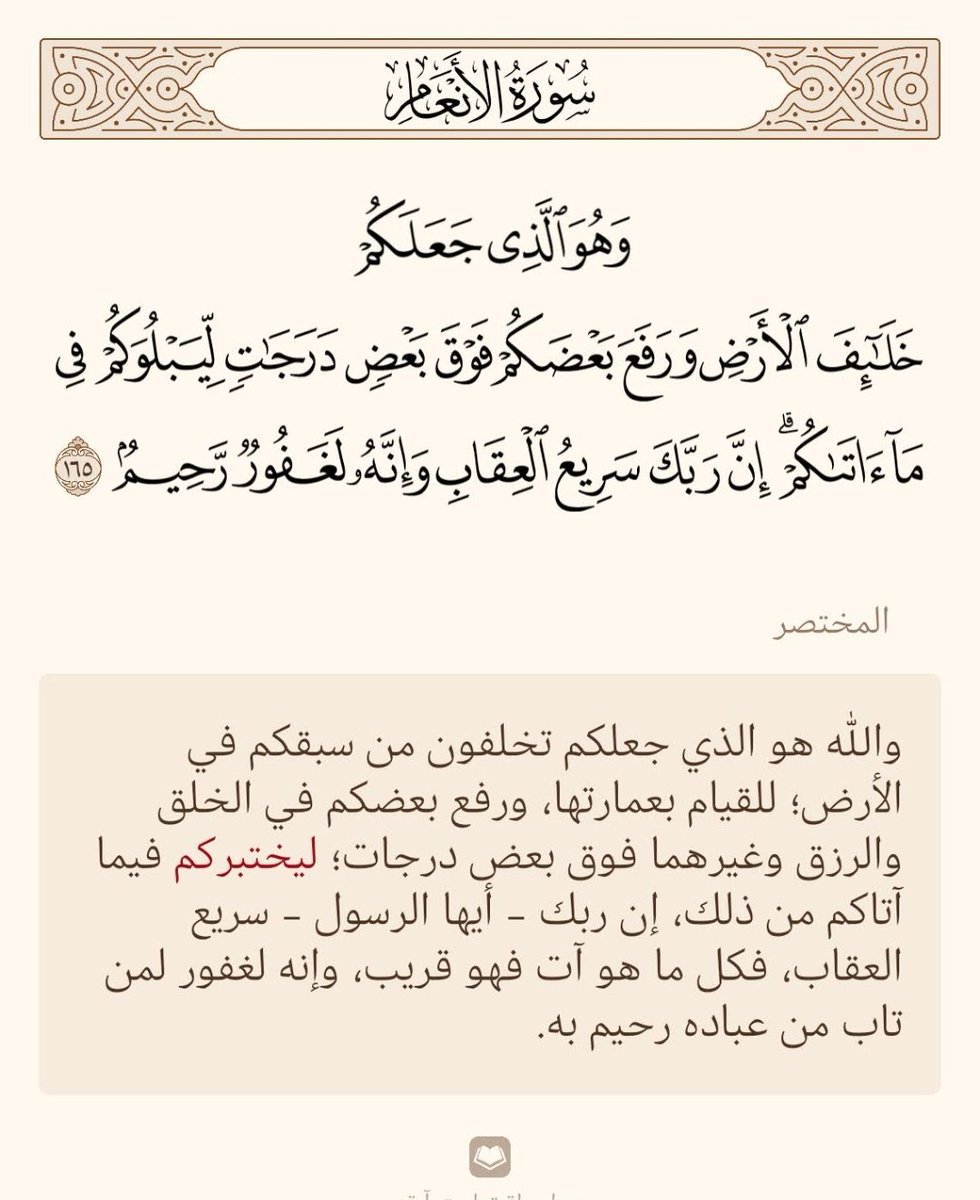 سُورَةُ الأَنْعَامِ
وَهُوَ ٱلَّذِى جَعَلَكُمْ
خَلَـٰٓئِفَ ٱلْأَرْضِ وَرَفَعَ بَعْضَكُمْ فَوْقَ بَعْضٍ دَرَجَـٰتٍ لِّيَبْلُوَكُمْ فِى
مَآ ءَاتَىٰكُمْ ۗ إِنَّ رَبَّكَ سَرِيعُ ٱلْعِقَابِ وَإِنَّهُۥ لَغَفُورٌ رَّحِيمٌۢ ١٦٥
المختصر
والله هو الذي جعلكم تخلفون من سبقكم في
الأرض؛ للقيام بعمارتها، ورفع بعضكم في الخلق
والرزق وغيرهما فوق بعض درجات؛ ليختبركم فيما
آتاكم من ذلك، إن ربك - أيها الرسول - سريع
العقاب، فكل ما هو آت فهو قريب، وإنه لغفور لمن
تاب من عباده رحيم به.